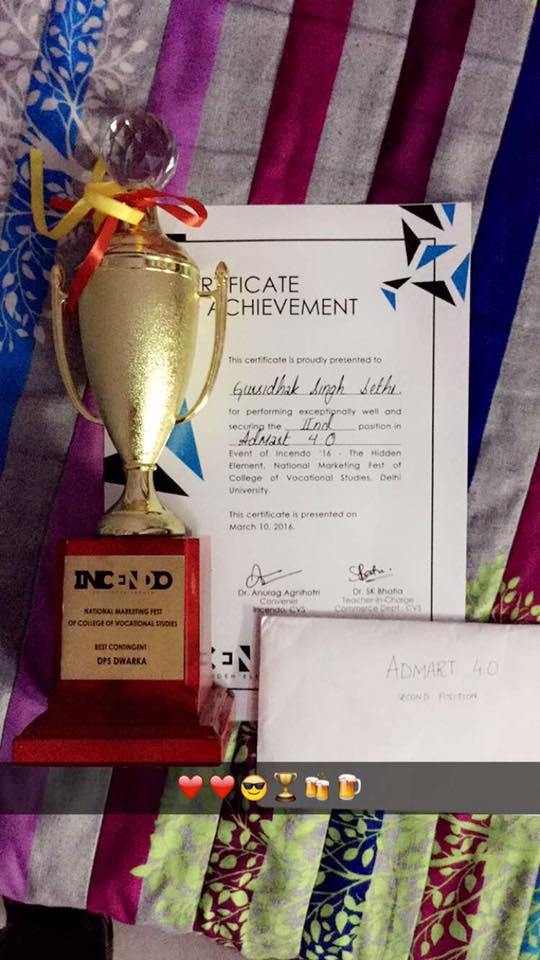 RTIFICATE
ACHIEVEMENT
This certificate is proudly presented to
Gursidhak Singh Sethi.
for performing exceptionally well and
securing the IInd position in
AdMart 4.0
Event of Incendo '16 - The Hidden
Element, National Marketing Fest of
College of Vocational Studies, Delhi
University.
This certificate is presented on
March 10, 2016.
Dr. Anurag Agnihotri
Convener
Incendo, CVS
Dr. SK Bhatia
Teacher-in-Charge
Commerce Dept., CVS
INCENDO
NATIONAL MARKETING FEST
OF COLLEGE OF VOCATIONAL STUDIES
BEST CONTINGENT
DPS DWARKA
ADMART 4.0
SECOND POSITION